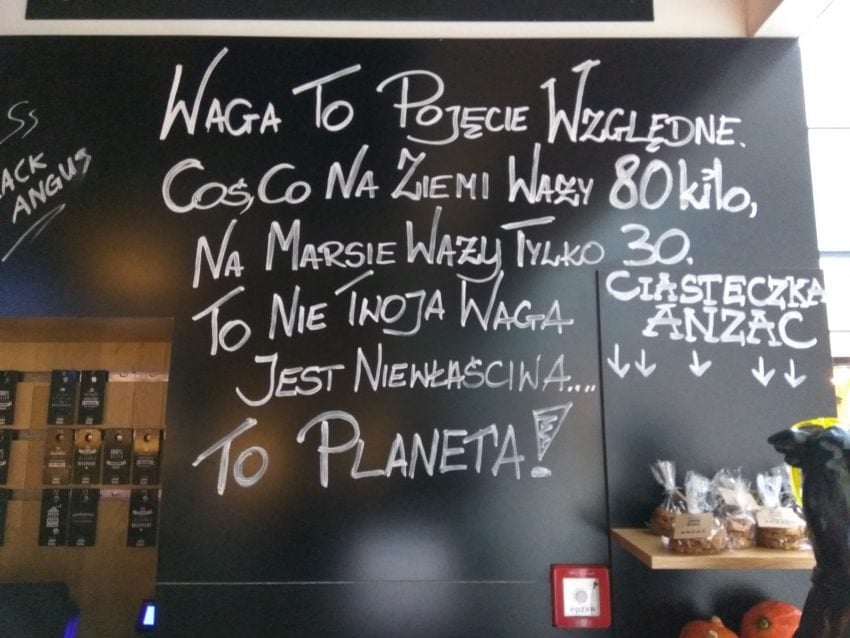 Ss
ANGUS
WAGA TO POJĘCIE WZGLĘDNE.
COŚ, CO NA ZIEMI WAŻY 80 kilo,
NA MARSIE WAŻY TYLKO 30.
TO NIE TWOJA WAGA
JEST NIEWŁAŚCIWA....
TO PLANETA!
CIASTECZKA
ANZAC
ANZAC
POŻAR